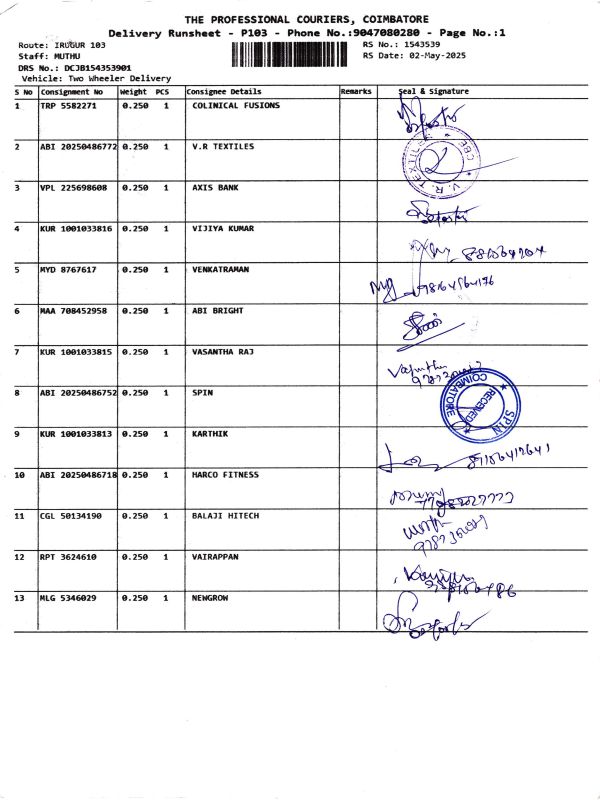 THE PROFESSIONAL COURIERS, COIMBATORE
Delivery Runsheet - P103 - Phone No.:9047080280 - Page No.:1
Route: IRUGUR 103 RS No.: 1543539
Staff: MUTHU RS Date: 02-May-2025
DRS No.: DCJB154353901
Vehicle: Two Wheeler Delivery
S No Consignment No Weight PCS Consignee Details Remarks Seal & Signature
1 TRP 5582271 0.250 1 COLINICAL FUSIONS
2 ABI 20250486772 0.250 1 V.R TEXTILES
V. R. TEXTILE CBE
3 VPL 225698608 0.250 1 AXIS BANK
4 KUR 1001033816 0.250 1 VIJIYA KUMAR
5 MYD 8767617 0.250 1 VENKATRAMAN
6 MAA 708452958 0.250 1 ABI BRIGHT
7 KUR 1001033815 0.250 1 VASANTHA RAJ
8 ABI 20250486752 0.250 1 SPIN
SPIN COIMBATORE RECEIVED
9 KUR 1001033813 0.250 1 KARTHIK
10 ABI 20250486718 0.250 1 HARCO FITNESS
11 CGL 50134190 0.250 1 BALAJI HITECH
12 RPT 3624610 0.250 1 VAIRAPPAN
13 MLG 5346029 0.250 1 NEWGROW